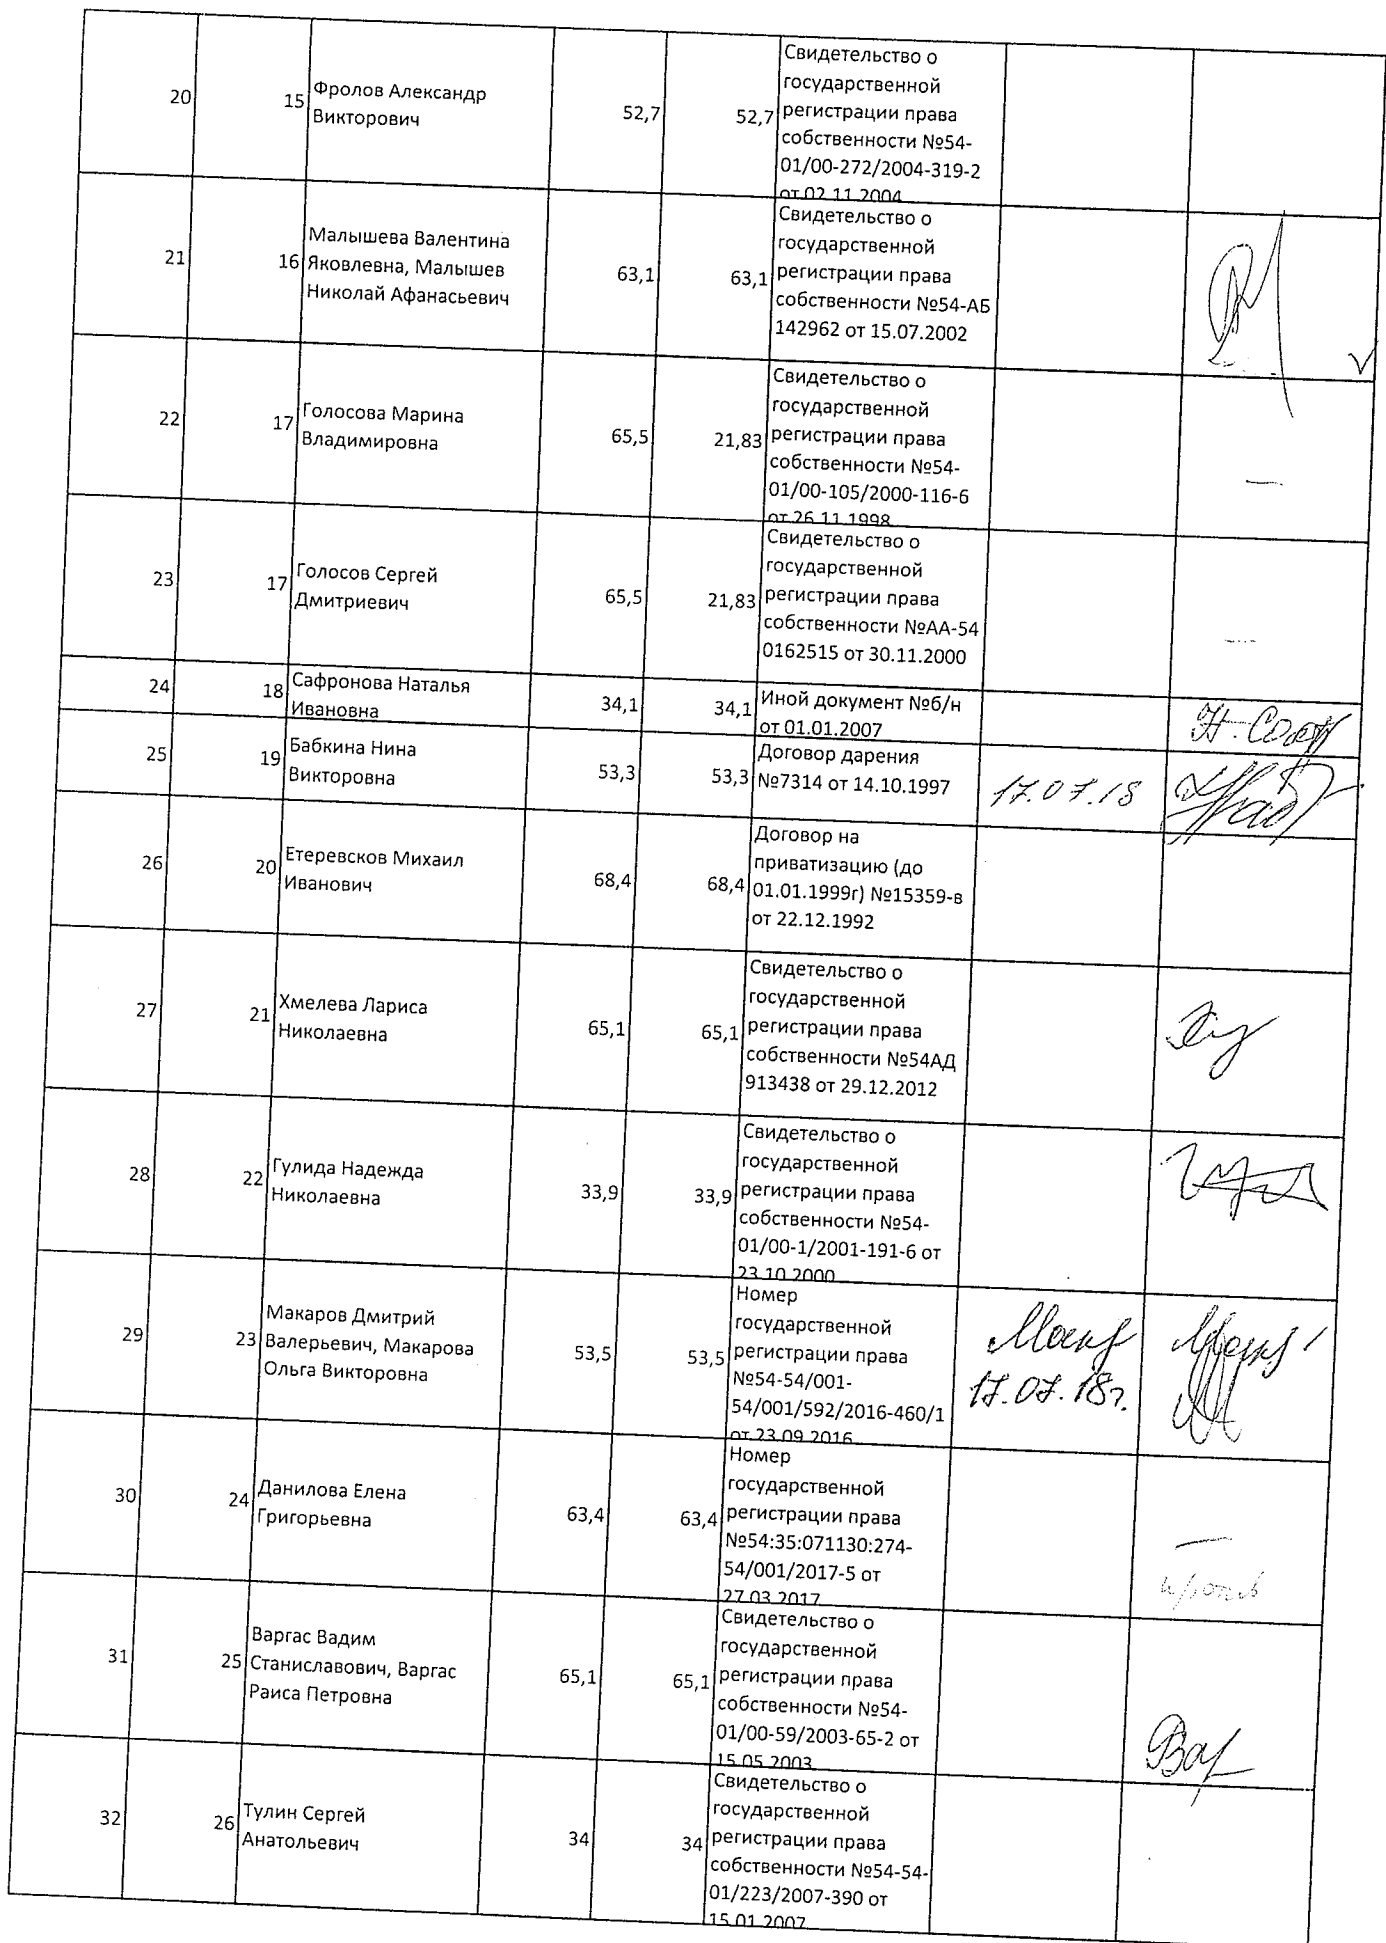 20
15
Фролов Александр
Викторович
52,7
52,7
Свидетельство о
государственной
регистрации права
собственности №54-
01/00-272/2004-319-2
от 02.11.2004
21
16
Малышева Валентина
Яковлевна, Малышев
Николай Афанасьевич
63,1
63,1
Свидетельство о
государственной
регистрации права
собственности №54-АБ
142962 от 15.07.2002
22
17
Голосова Марина
Владимировна
65,5
21,83
Свидетельство о
государственной
регистрации права
собственности №54-
01/00-105/2000-116-6
от 26.11.1998
—
23
17
Голосов Сергей
Дмитриевич
65,5
21,83
Свидетельство о
государственной
регистрации права
собственности №АА-54
0162515 от 30.11.2000
—
24
18
Сафронова Наталья
Ивановна
34,1
34,1
Иной документ №б/н
от 01.01.2007
25
19
Бабкина Нина
Викторовна
53,3
53,3
Договор дарения
№7314 от 14.10.1997
17.07.18
26
20
Етеревсков Михаил
Иванович
68,4
68,4
Договор на
приватизацию (до
01.01.1999г) №15359-в
от 22.12.1992
27
21
Хмелева Лариса
Николаевна
65,1
65,1
Свидетельство о
государственной
регистрации права
собственности №54АД
913438 от 29.12.2012
28
22
Гулида Надежда
Николаевна
33,9
33,9
Свидетельство о
государственной
регистрации права
собственности №54-
01/00-1/2001-191-6 от
23.10.2000
29
23
Макаров Дмитрий
Валерьевич, Макарова
Ольга Викторовна
53,5
53,5
Номер
государственной
регистрации права
№54-54/001-
54/001/592/2016-460/1
от 23.09.2016
17.07.18г.
30
24
Данилова Елена
Григорьевна
63,4
63,4
Номер
государственной
регистрации права
№54:35:071130:274-
54/001/2017-5 от
27.03.2017
—
против
31
25
Варгас Вадим
Станиславович, Варгас
Раиса Петровна
65,1
65,1
Свидетельство о
государственной
регистрации права
собственности №54-
01/00-59/2003-65-2 от
15.05.2003
Вар
32
26
Тулин Сергей
Анатольевич
34
34
Свидетельство о
государственной
регистрации права
собственности №54-54-
01/223/2007-390 от
15.01.2007